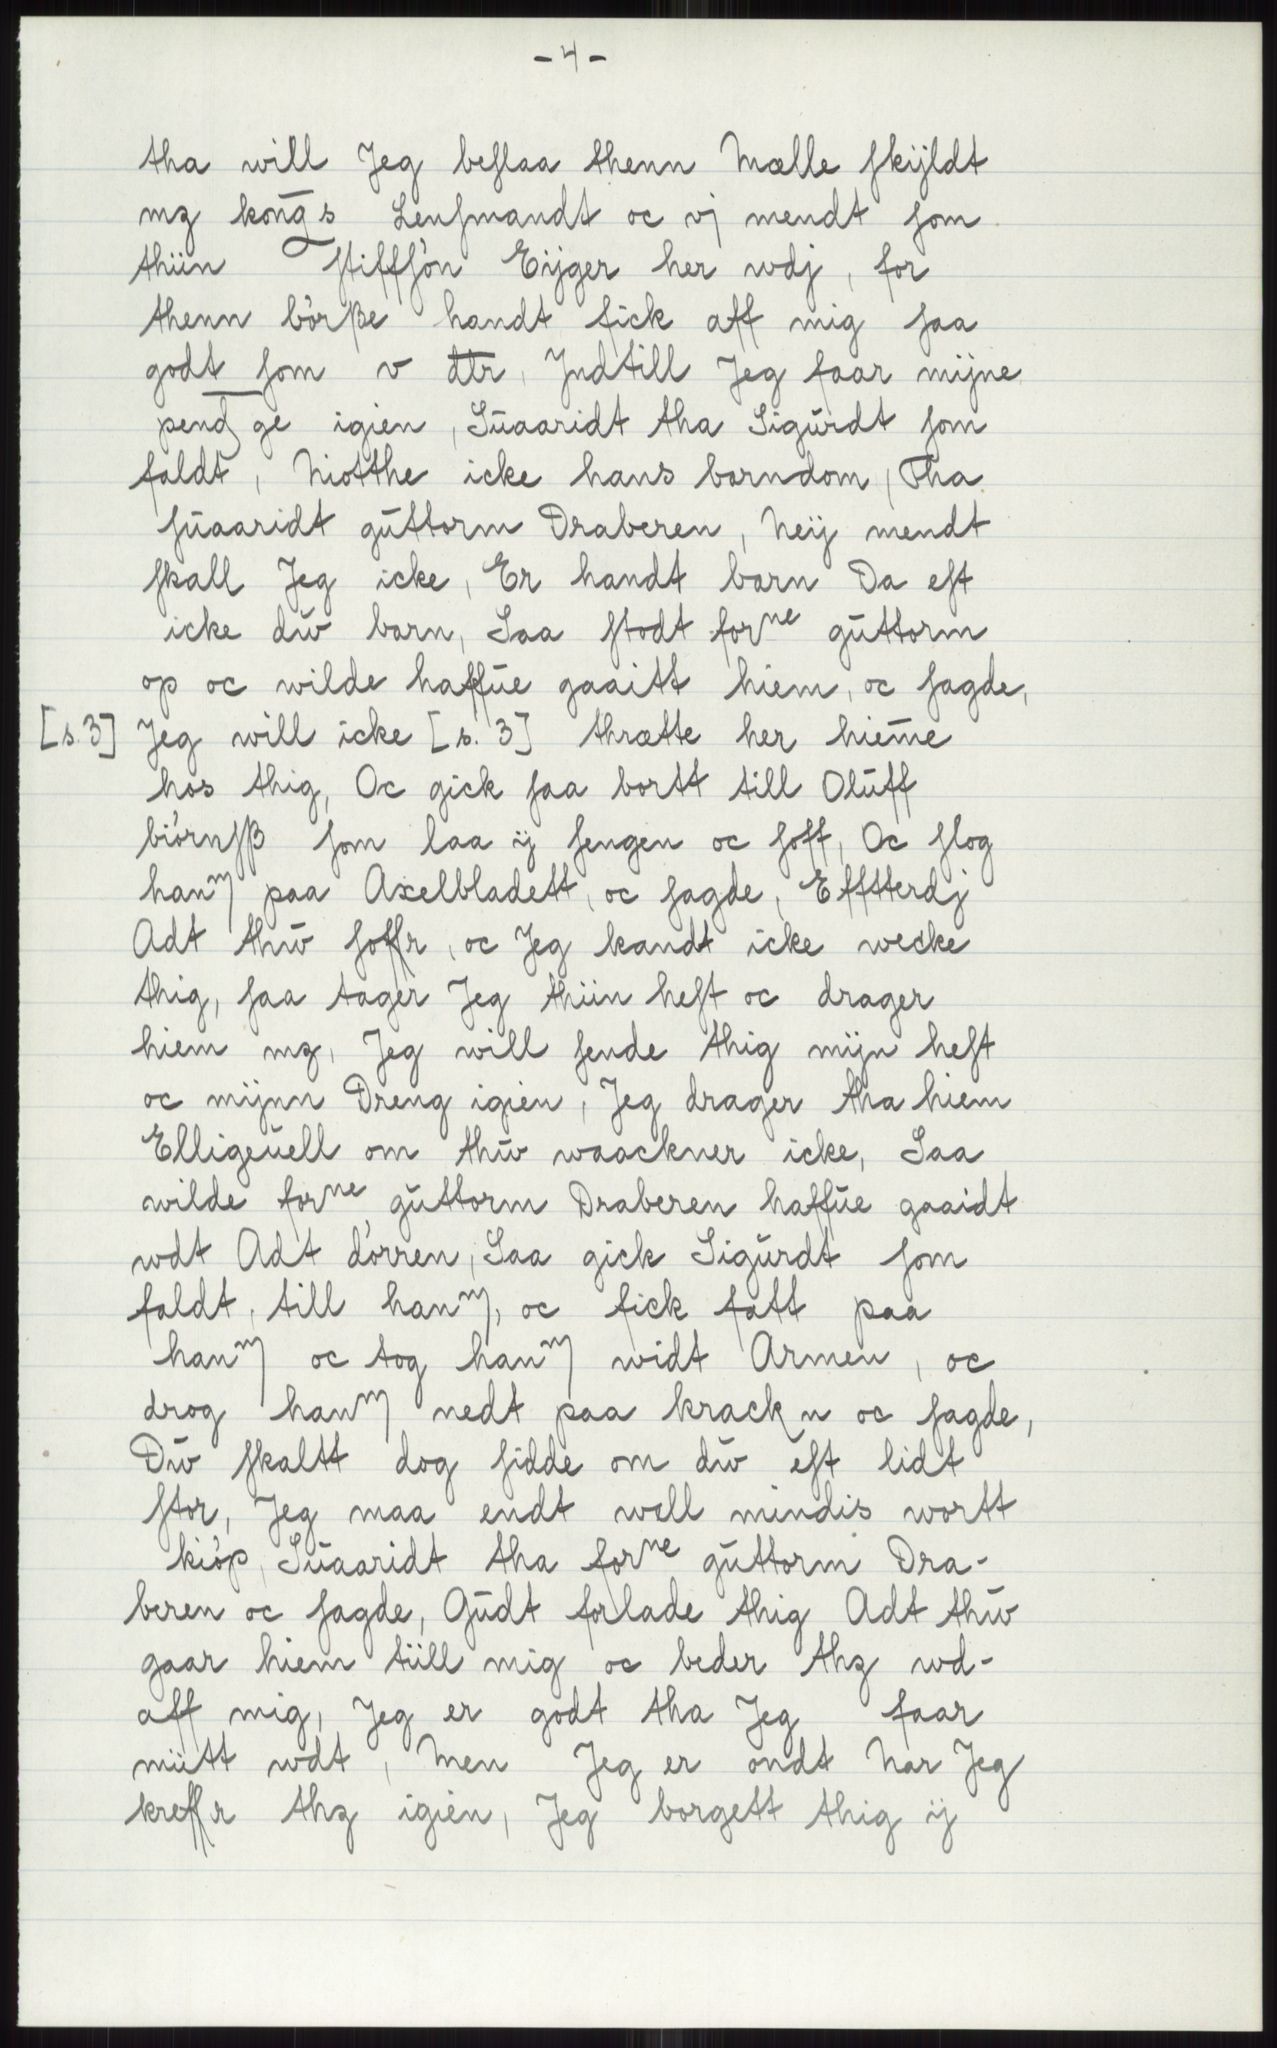 - 4 -
tha will Jeg beslaa thenn Mælle skijldt
mz kongs Lensmandt oc vj mendt som
thiin stiffsön Eijger her wdj, for
thenn börße handt fick aff mig saa
godt som v dlr, Indtill Jeg faar mijne
pendge igien, Suaaridt tha Sigurdt som
faldt, Niotthe icke hans barndom, Tha
suaaridt guttorm Draberen, Neij mendt
skall Jeg icke, Er handt barn Da est
icke dw barn, Saa stodt forne guttorm
op oc wilde haffue gaaitt hiem, oc sagde,
[s. 3] Jeg will icke [s. 3] thrætte her hieme
hos thig, Oc gick saa bortt till Oluff
biörnsß som laa ij sengen oc soff, Oc slog
hanm paa Axelbladett, oc sagde, Effterdj
Adt thw soffr, oc Jeg kandt icke wecke
thig, saa tager Jeg thiin hest oc drager
hiem mz, Jeg will sende thig mijn hest
oc mijnn Dreng igien, Jeg drager tha hiem
Elligeuell om thw waackner icke, Saa
wilde forne guttorm Draberen haffue gaaidt
wdt Adt dörren, Saa gick Sigurdt som
faldt, till hanm, oc fick fatt paa
hanm oc tog hanm widt Armen, oc
drog hanm nedt paa krackn oc sagde,
Dw skaltt dog sidde om dw est lidt
stor, Jeg maa endt well mindis wortt
kiöp, Suaaridt tha forne guttorm Dra-
beren oc sagde, Gudt forlade thig Adt thw
gaar hiem tiill mig oc beder thz wd-
aff mig, Jeg er godt tha Jeg faar
miitt wdt, Men Jeg er ondt Nar Jeg
kreffr thz igien, Jeg borgett thig ij